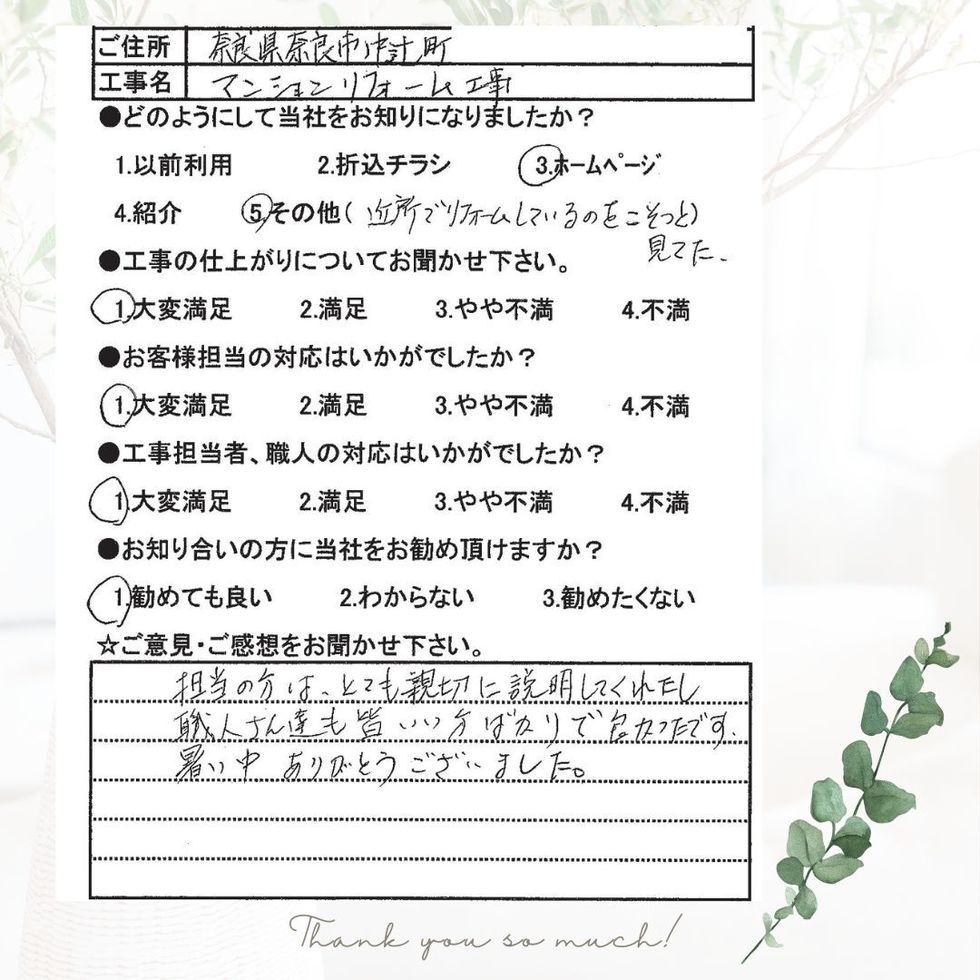 ご住所 奈良県奈良市中計町
工事名 マンションリフォーム工事
●どのようにして当社をお知りになりましたか？
1.以前利用 2.折込チラシ 3.ホームページ
4.紹介 5.その他( 近所でリフォームしているのをこそっと)
見てた、
●工事の仕上がりについてお聞かせ下さい。
1.大変満足 2.満足 3.やや不満 4.不満
●お客様担当の対応はいかがでしたか？
1.大変満足 2.満足 3.やや不満 4.不満
●工事担当者、職人の対応はいかがでしたか？
1.大変満足 2.満足 3.やや不満 4.不満
●お知り合いの方に当社をお勧め頂けますか？
1.勧めても良い 2.わからない 3.勧めたくない
☆ご意見・ご感想をお聞かせ下さい。
担当の方は、とても親切に説明してくれたし
職人さん達も皆いい方ばかりで良かったです、
暑い中 ありがとうございました。
Thank you so much!